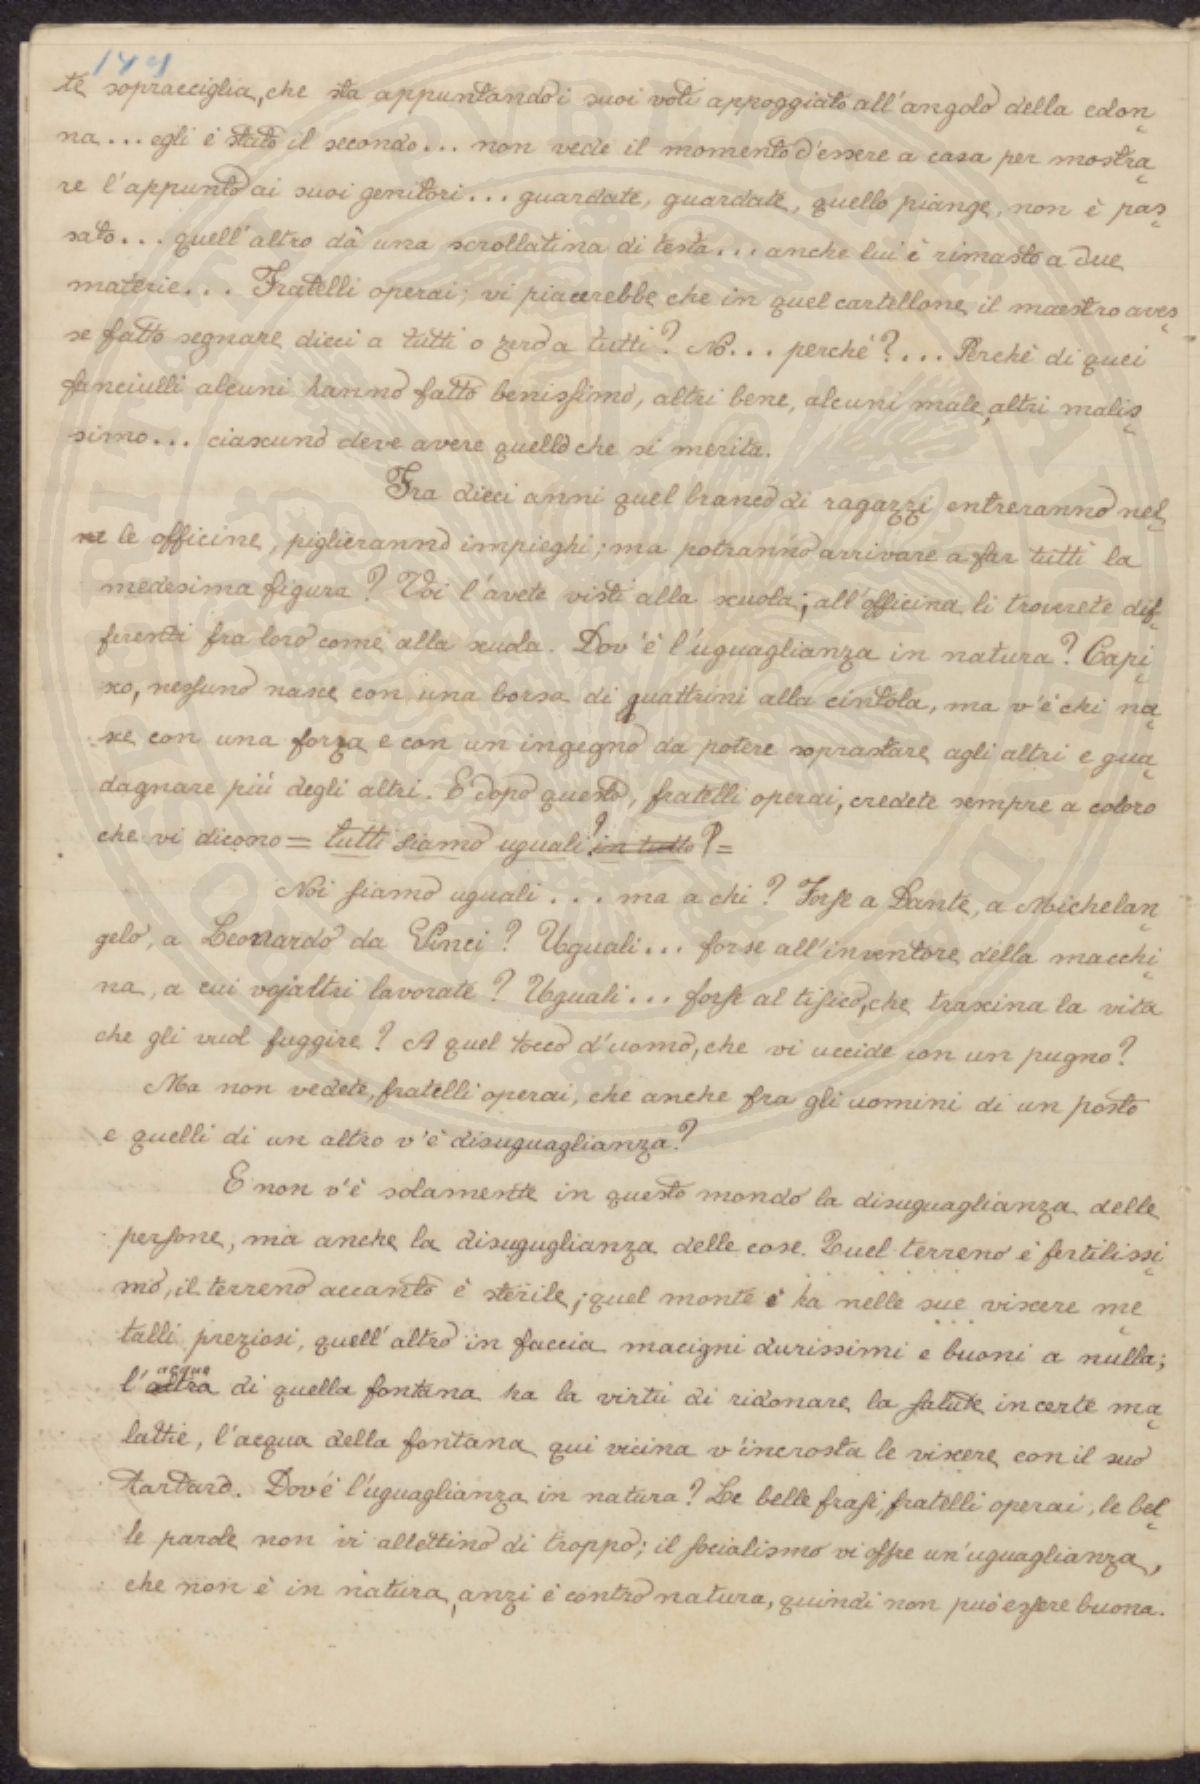 149
te sopracciglia, che sta appuntando i suoi voti appoggiato all'angolo della colon
na... egli è stato il secondo... non vede il momento d'essere a casa per mostra
re l'appunto ai suoi genitori... guardate, guardate, quello piange, non è pas
sato... quell'altro dà una scrollatina di testa... anche lui è rimasto a due
materie... Fratelli operai; vi piacerebbe che in quel cartellone il maestro aves
se fatto segnare dieci a tutti o zero a tutti? No... perché?... Perchè di quei
fanciulli alcuni hanno fatto benissimo, altri bene, alcuni male, altri malis
simo... ciascuno deve avere quello che si merita.
Fra dieci anni quel branco di ragazzi entreranno nel
le officine, piglieranno impieghi; ma potranno arrivare a far tutti la
medesima figura? Voi l'avete visti alla scuola; all'officina li troverete dif
ferenti fra loro come alla scuola. Dov'è l'uguaglianza in natura? Capi
sco, nessuno nasce con una borsa di quattrini alla cintola, ma v'è chi na
sce con una forza e con un ingegno da potere soprastare agli altri e gua
dagnare più degli altri. E dopo questo, fratelli operai, credete sempre a coloro
che vi dicono = tutti siamo uguali? in tutto? =
Noi siamo uguali... ma a chi? Forse a Dante, a Michelan
gelo, a Leonardo da Vinci? Uguali... forse all'inventore della macchi
na, a cui vojaltri lavorate? Uguali... forse al tisico, che trascina la vita
che gli vuol fuggire? A quel tocco d'uomo, che vi uccide con un pugno?
Ma non vedete, fratelli operai, che anche fra gli uomini di un posto
e quelli di un altro v'è disuguaglianza?
E non v'è solamente in questo mondo la disuguaglianza delle
persone, ma anche la disuguglianza delle cose. Quel terreno è fertilissi
mo, il terreno accanto è sterile; quel monte è ha nelle sue viscere me
talli preziosi, quell'altro in faccia macigni durissimi e buoni a nulla;
l'acqua di quella fontana ha la virtù di ridonare la salute in certe ma
lattie, l'acqua della fontana qui vicina v'incrosta le viscere con il suo
tartaro. Dov'è l'uguaglianza in natura? Le belle frasi, fratelli operai, le bel
le parole non vi allettino di troppo; il socialismo vi offre un'uguaglianza,
che non è in natura, anzi è contro natura, quindi non può essere buona.